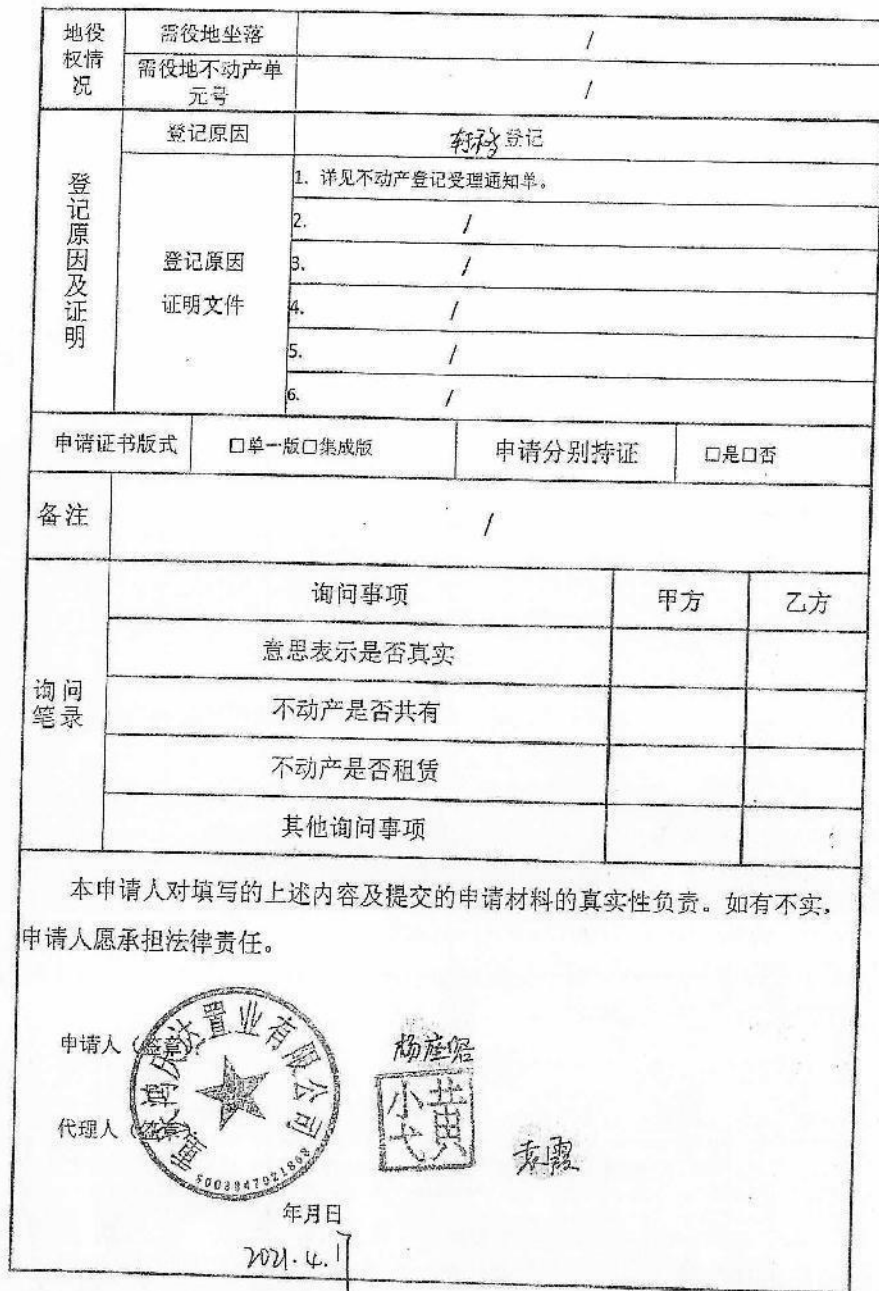 地役权情况
需役地坐落 /
需役地不动产单元号 /
登记原因及证明
登记原因 转移登记
登记原因
证明文件
1. 详见不动产登记受理通知单。
2. /
3. /
4. /
5. /
6. /
申请证书版式 □单一版□集成版 申请分别持证 □是□否
备注 /
询问笔录
询问事项 甲方 乙方
意思表示是否真实
不动产是否共有
不动产是否租赁
其他询问事项
本申请人对填写的上述内容及提交的申请材料的真实性负责。如有不实,
申请人愿承担法律责任。
申请人（签章）
置业有限公司
小黄弋
代理人（签章）
袁霞
年月日
2021.4.1